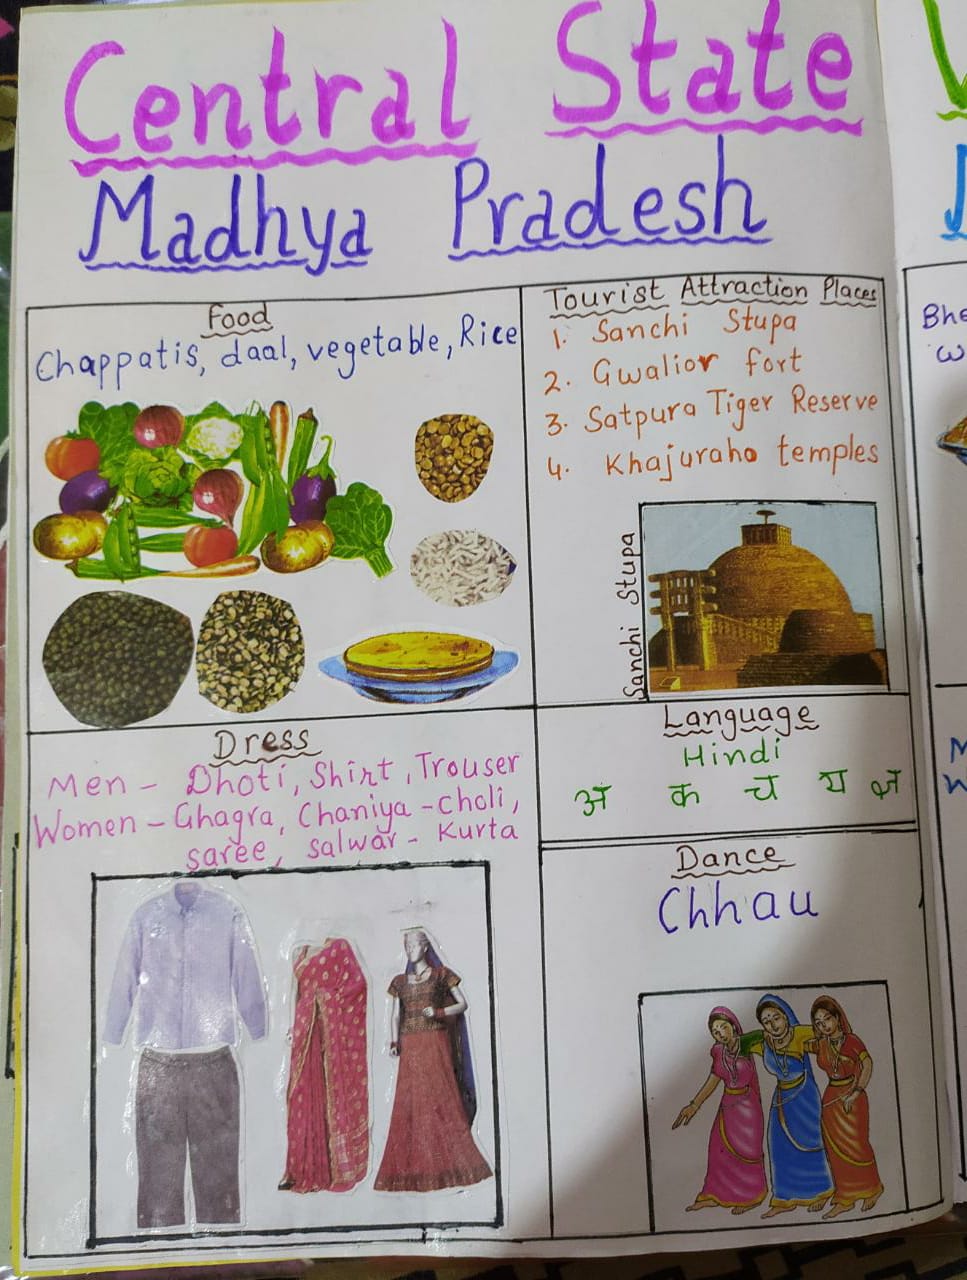 Central State
Madhya Pradesh
Food
Chappatis, daal, vegetable, Rice
Tourist Attraction Places
1. Sanchi Stupa
2. Gwalior fort
3. Satpura Tiger Reserve
4. Khajuraho temples
Sanchi Stupa
Dress
Men - Dhoti, Shirt, Trouser
Women - Ghagra, Chaniya - choli,
saree, salwar - Kurta
Language
Hindi
अ क च य
Dance
Chhau
Bhe